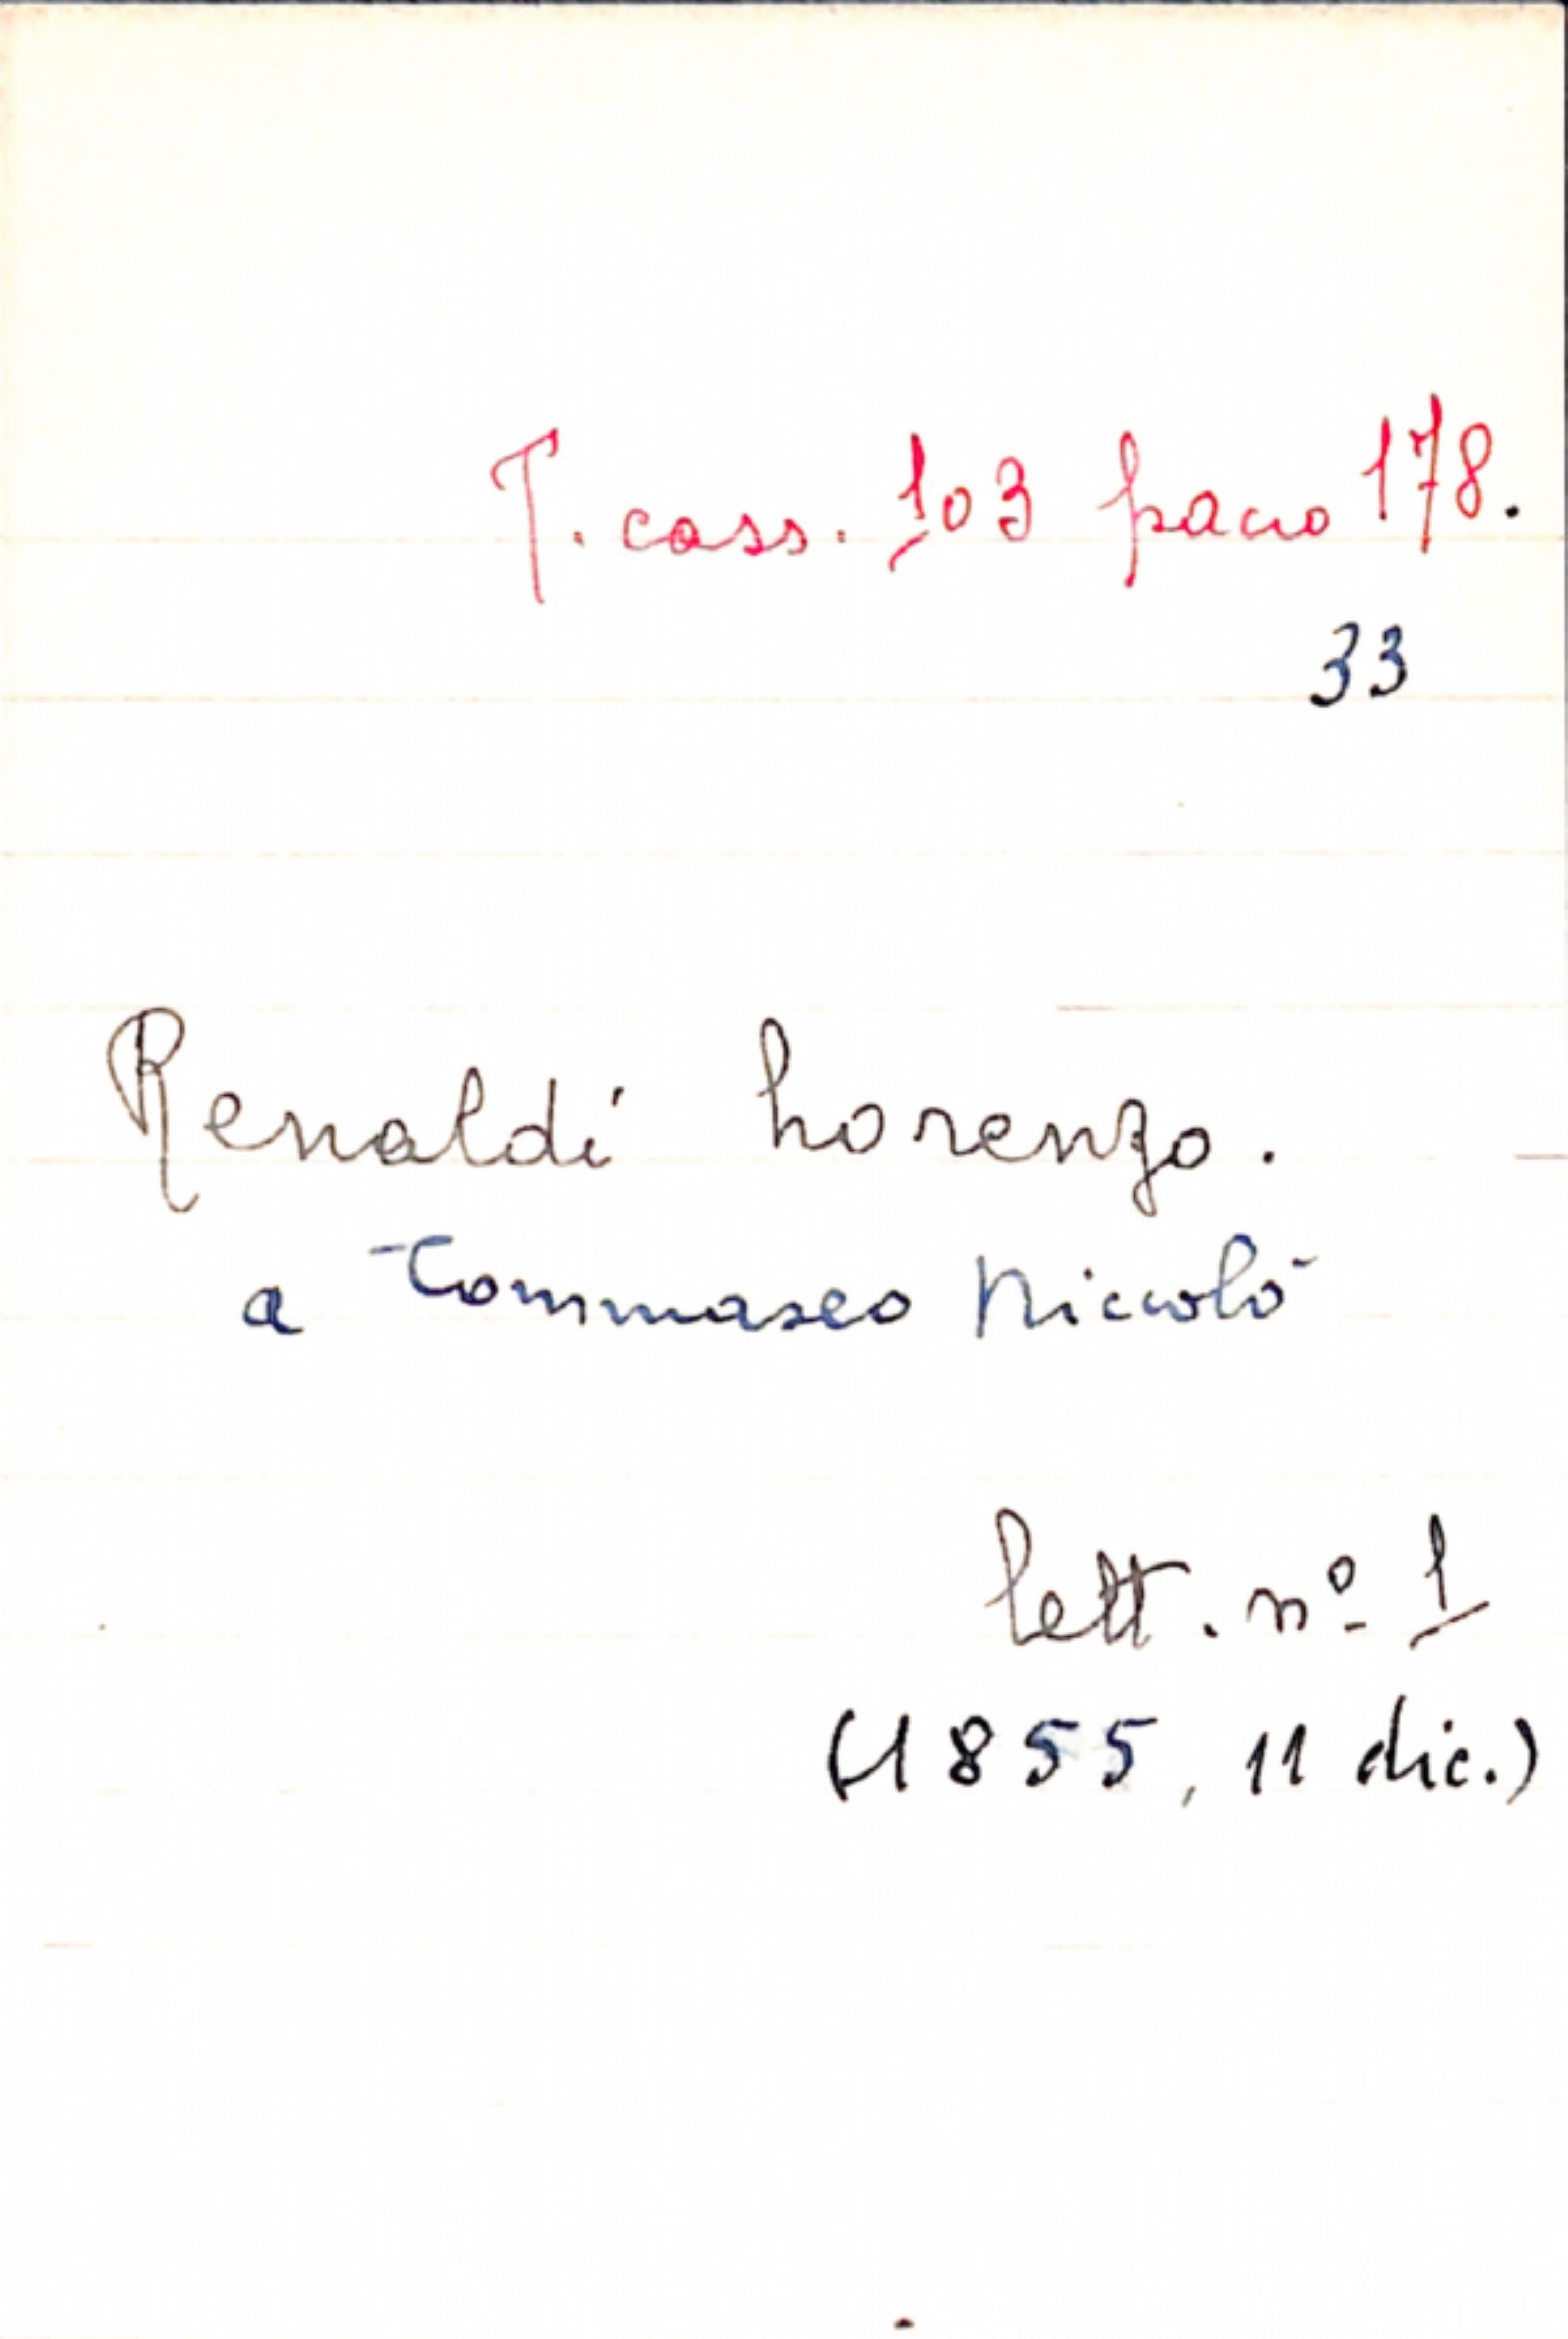 T. cass. 103 pacco 178.
33
Renaldi Lorenzo.
a Tommaseo Niccolò
lett. nº 1
(1855, 11 dic.)